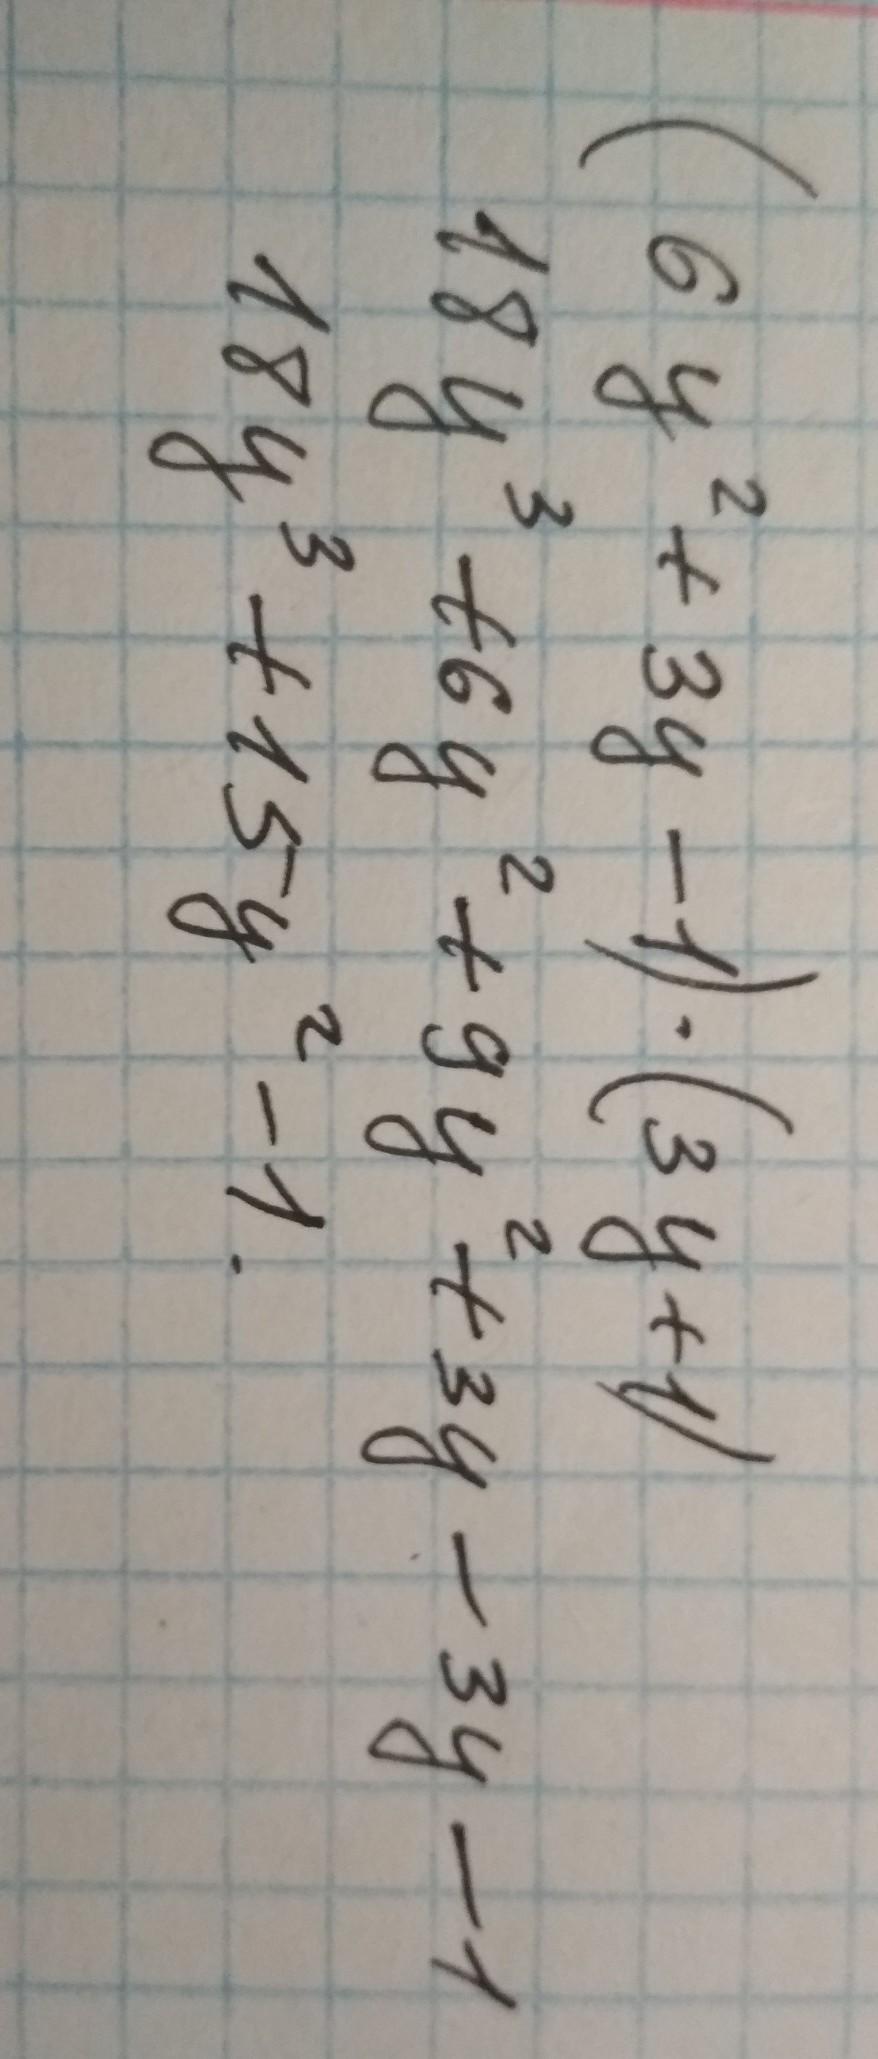 (6y² + 3y - 1) · (3y + 1)
18y³ + 6y² + 9y² + 3y - 3y - 1
18y³ + 15y² - 1.